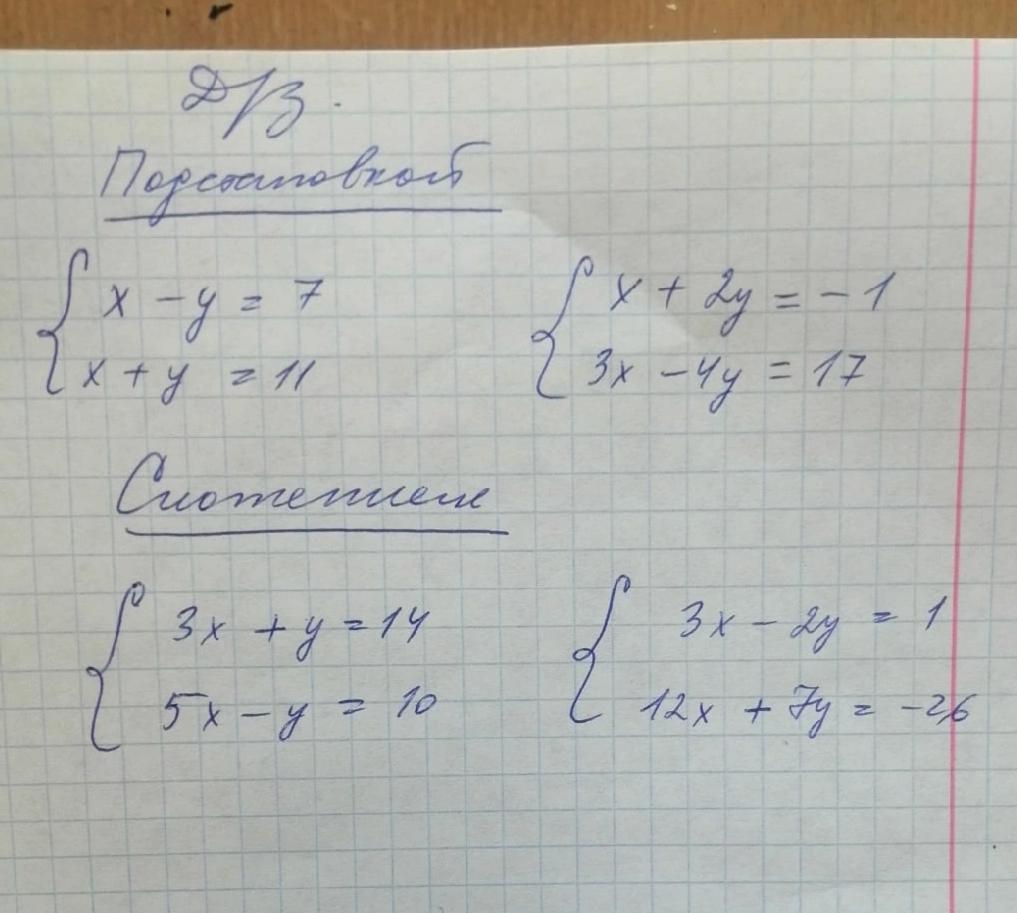 Д/З.
Подстановкой
x - y = 7
x + y = 11
x + 2y = -1
3x - 4y = 17
Сложением
3x + y = 14
5x - y = 10
3x - 2y = 1
12x + 7y = -26